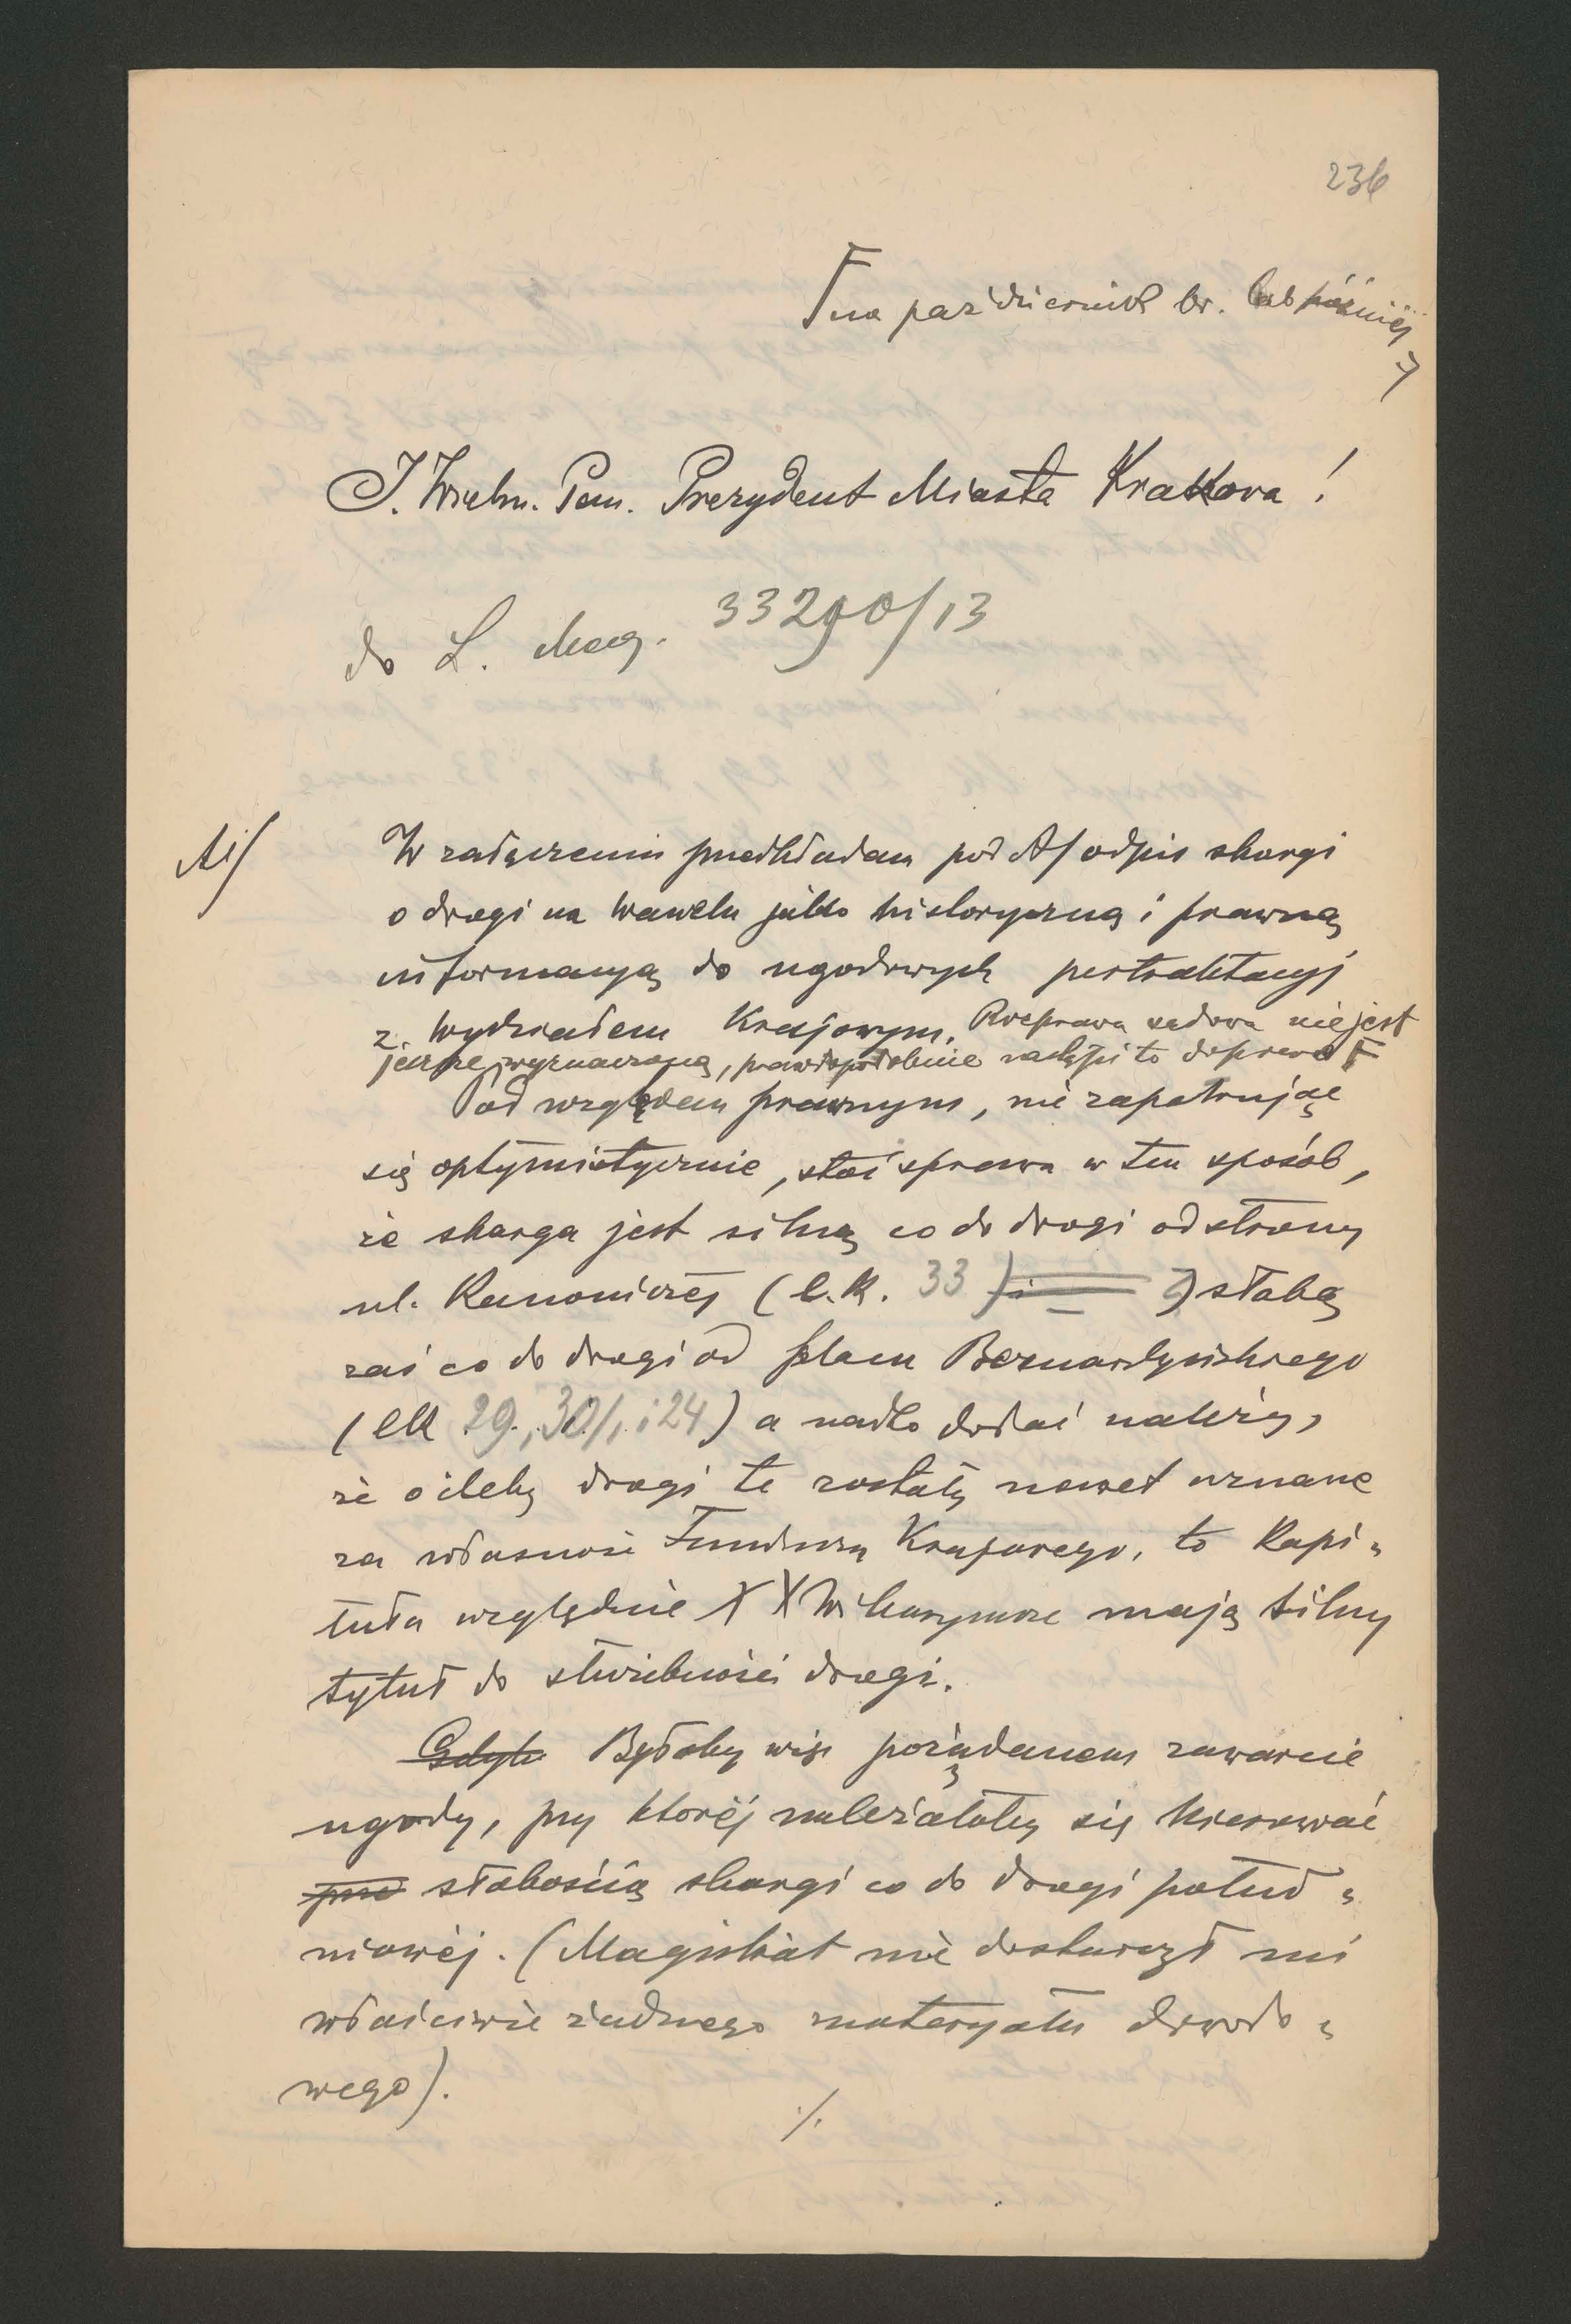 236
Γ na październik br. lub później
7
J. Wielm. Pan. Prezydent Miasta Krakowa!
do L. Mag. 33290/13
A/
W załączeniu przedkładam pod A/ odpis skargi
o drogi na Wawelu jako historyczną i prawną
informacyą do ugodowych pertraktacyj
z Wydziałem Krajowym. Rozprawa sądowa nie jest
jeszcze wyznaczoną, prawdopodobnie nastąpi to dopiero Γ
Pod względem prawnym, nie zapatrując
się optymistycznie, stoi sprawa w ten sposób,
że skarga jest silną co do drogi od strony
ul. Kanoniczej (l.k. 33) i słabą
zaś co do drogi od placu Bernardyńskiego
(lk 29., 30/, i 24) a nadto dodać należy,
że o ileby drogi te zostały nawet uznane
za własność Funduszu Krajowego, to Kapi-
tuła względnie XX Wikaryusze mają silny
tytuł do służebności drogi.
Gdyb Byłoby więc pożądanem zawarcie
ugody, przy której należałoby się kierować
słabością skargi co do drogi połud-
niowéj. (Magistrat nie dostarczył mi
właściwie żadnego materyału dowodo-
wego).
./.